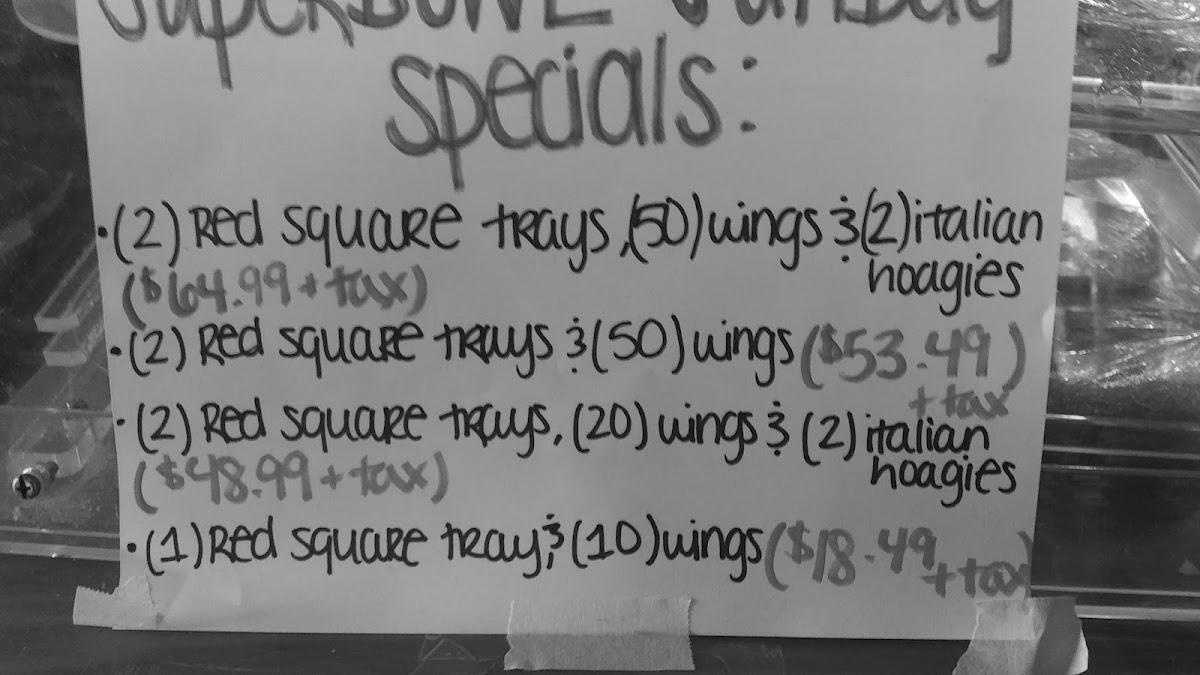 SuperBowl Sunday
specials:
• (2) Red square trays, (50) wings & (2) italian
hoagies
($64.99 + tax)
• (2) Red square trays & (50) wings ($53.49)
+ tax
• (2) Red square trays, (20) wings & (2) italian
hoagies
($48.99 + tax)
• (1) Red square tray & (10) wings ($18.49
+ tax)